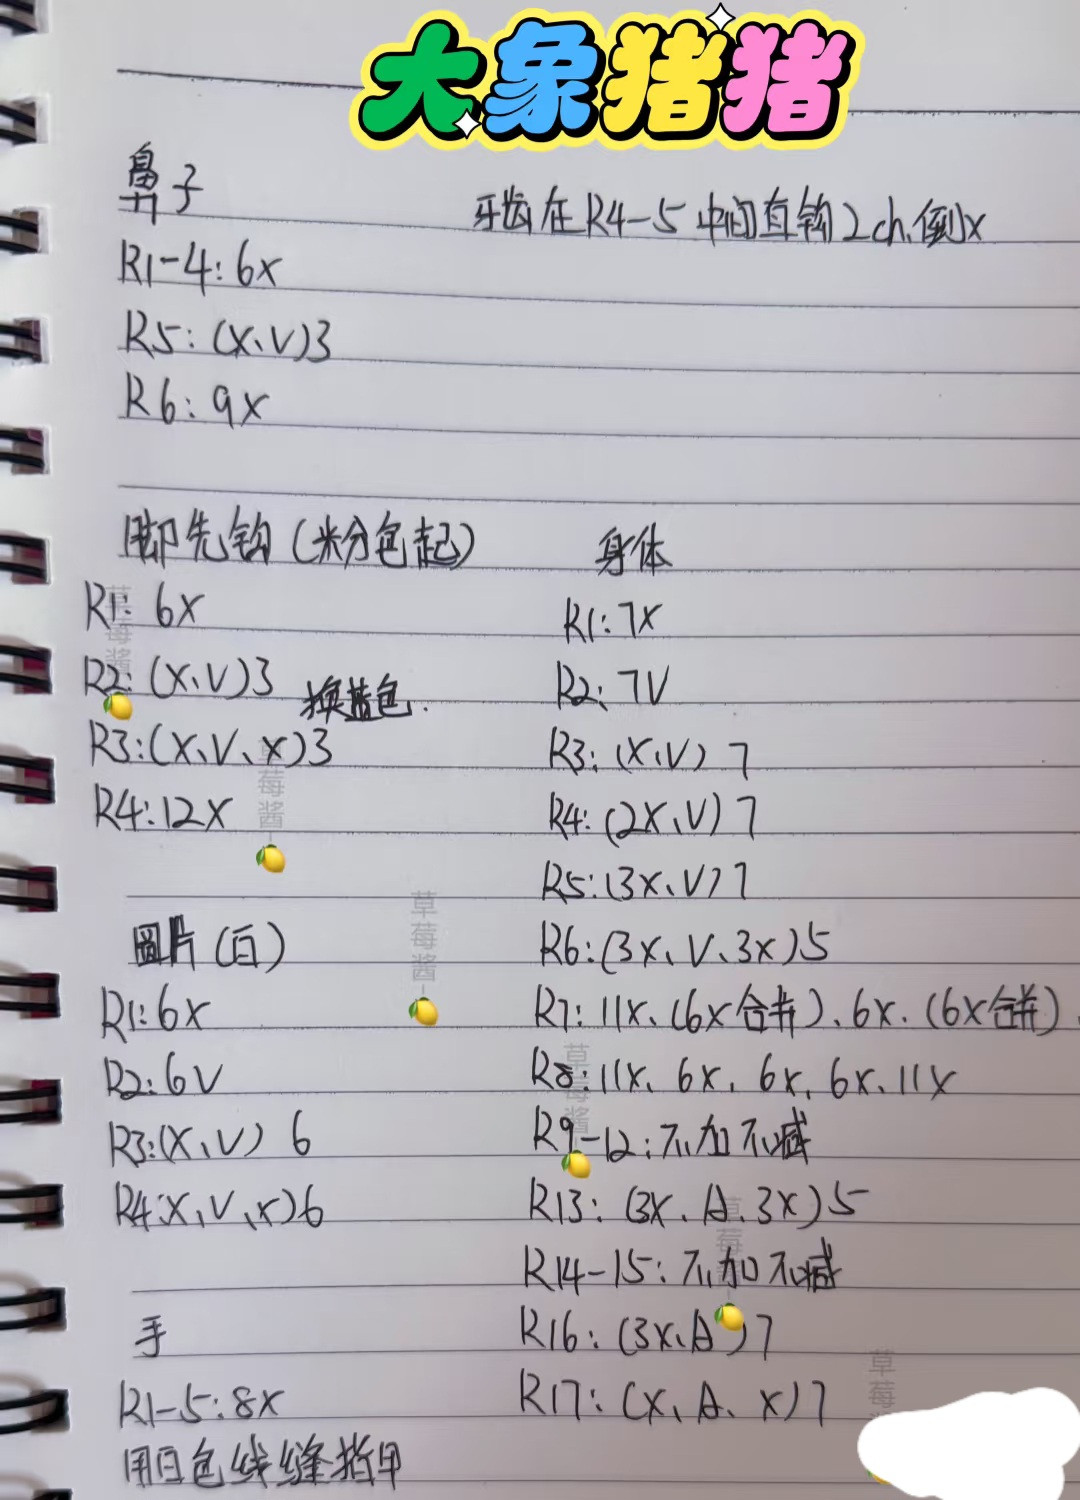 大象猪猪
鼻子
牙齿在R4-5中间直钩2ch、倒x
R1-4: 6x
R5: (x、v)3
R6: 9x
脚先钩(米分色起)
R1: 6x
R2: (x、v)3 换蓝色.
R3: (x、v、x)3
R4: 12x
圆片(白)
R1: 6x
R2: 6v
R3: (x、v) 6
R4: x、v、x)6
手
R1-5: 8x
用白色线缝指甲
身体
R1: 7x
R2: 7v
R3: (x、v) 7
R4: (2x、v) 7
R5: (3x、v) 7
R6: (3x、v、3x)5
R7: 11x、(6x合并)、6x. (6x合并).
R8: 11x、6x、6x、6x、11x
R9-12: 不加不减
R13: (3x、A、3x)5
R14-15: 不加不减
R16: (3x、A )7
R17: (x、A、x)7
草莓酱
草莓酱
草莓酱
草莓酱
草莓
草莓